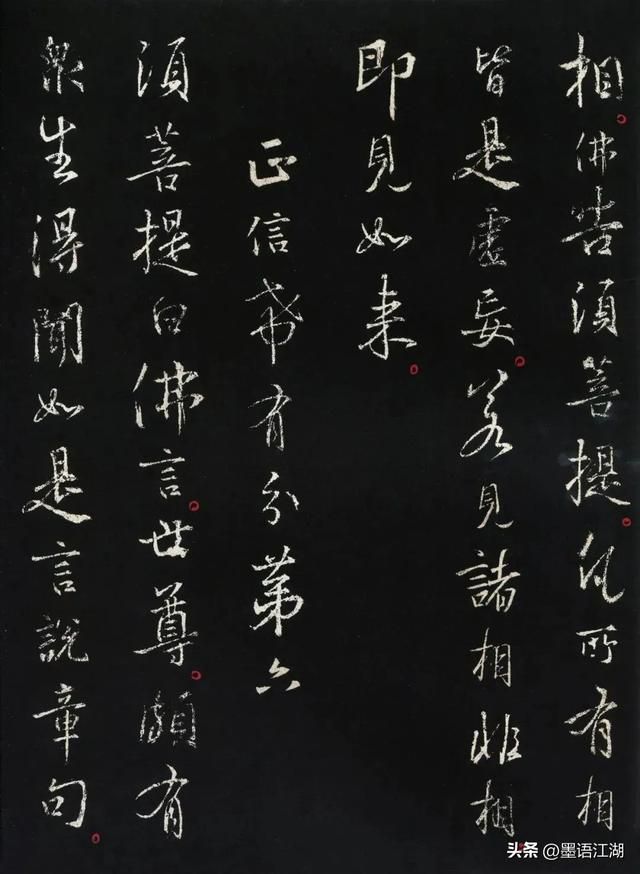 相佛告須菩提凡所有相
皆是虛妄若見諸相非相
即見如来
正信希有分第六
須菩提白佛言世尊頗有
眾生得聞如是言說章句
头条@墨语江湖